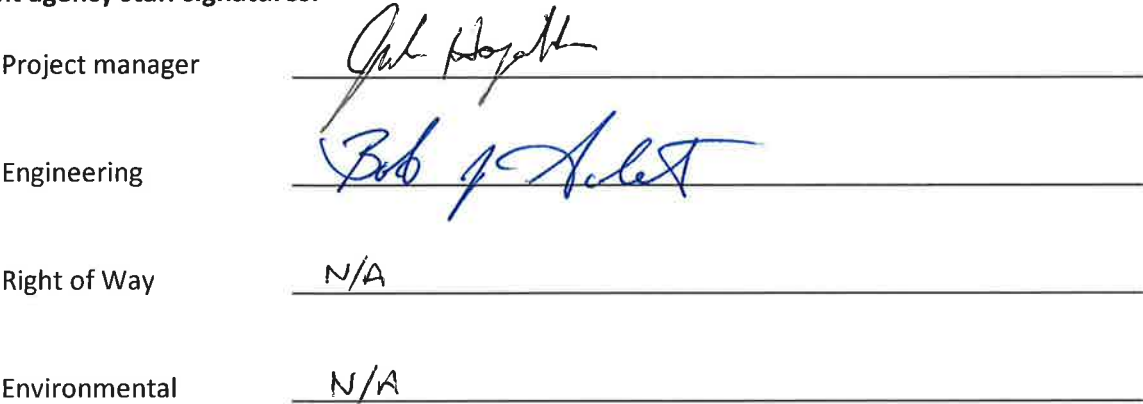 agency staff signatures:
Project manager
Engineering Bob J
Right of Way N/A
Environmental N/A